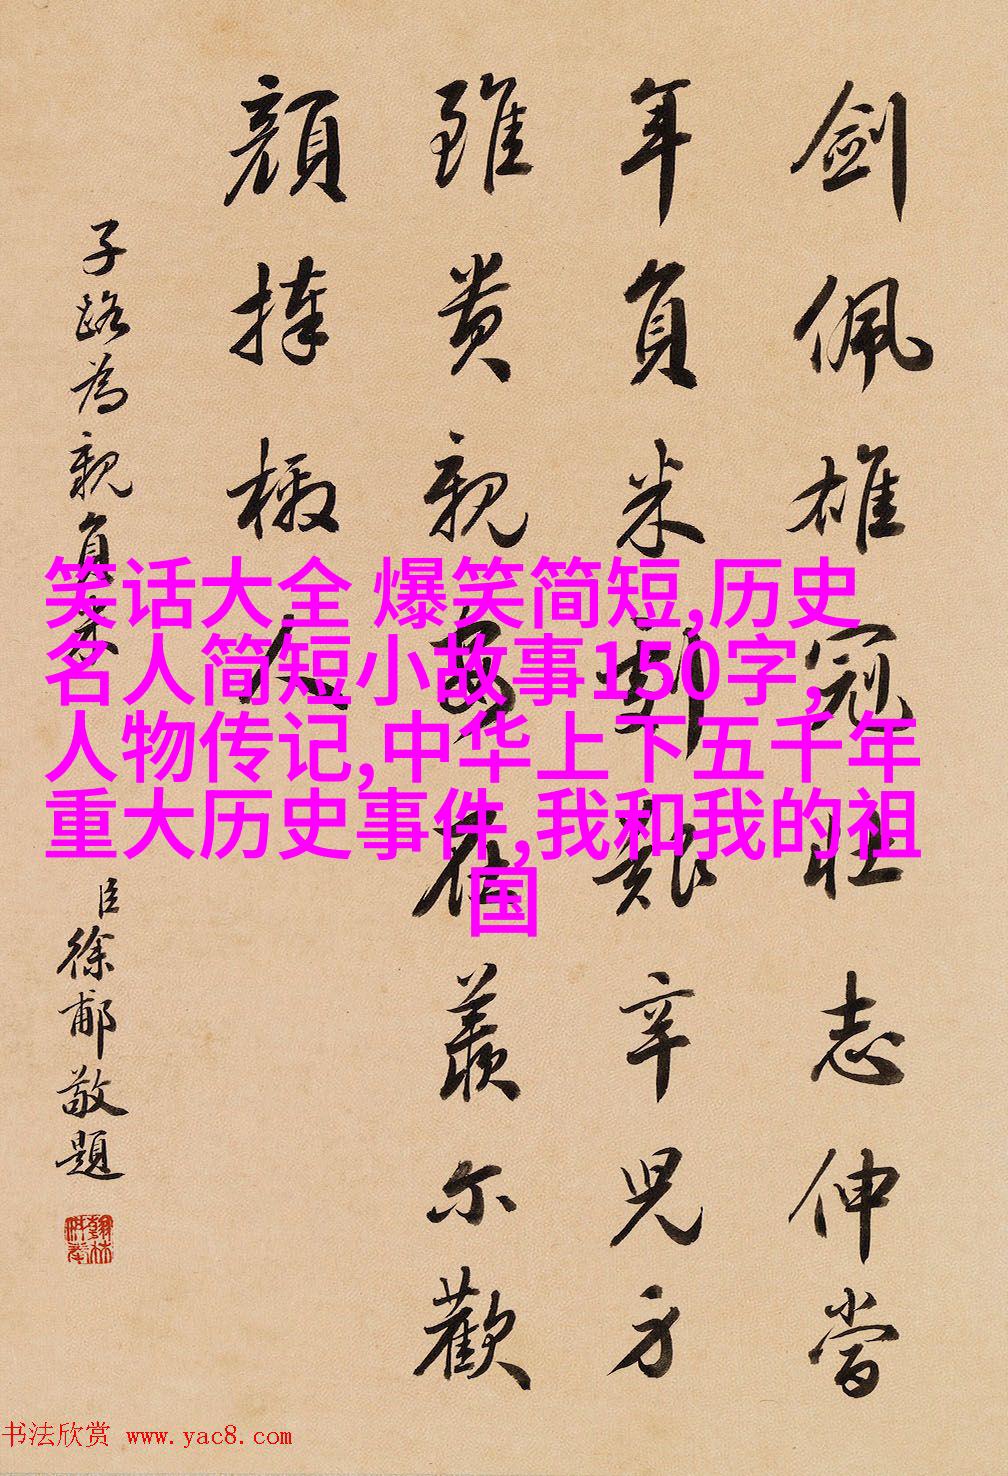 劍佩雄冠壯志伸當
年負米艱辛兒身
雖貴親安在羨爾歡
顏捧檄人
子路為親負米
臣徐郙敬題
笑话大全 爆笑简短,历史
名人简短小故事150字,
人物传记,中华上下五千年
重大历史事件,我和我的祖
国
书法欣赏 www.yac8.com